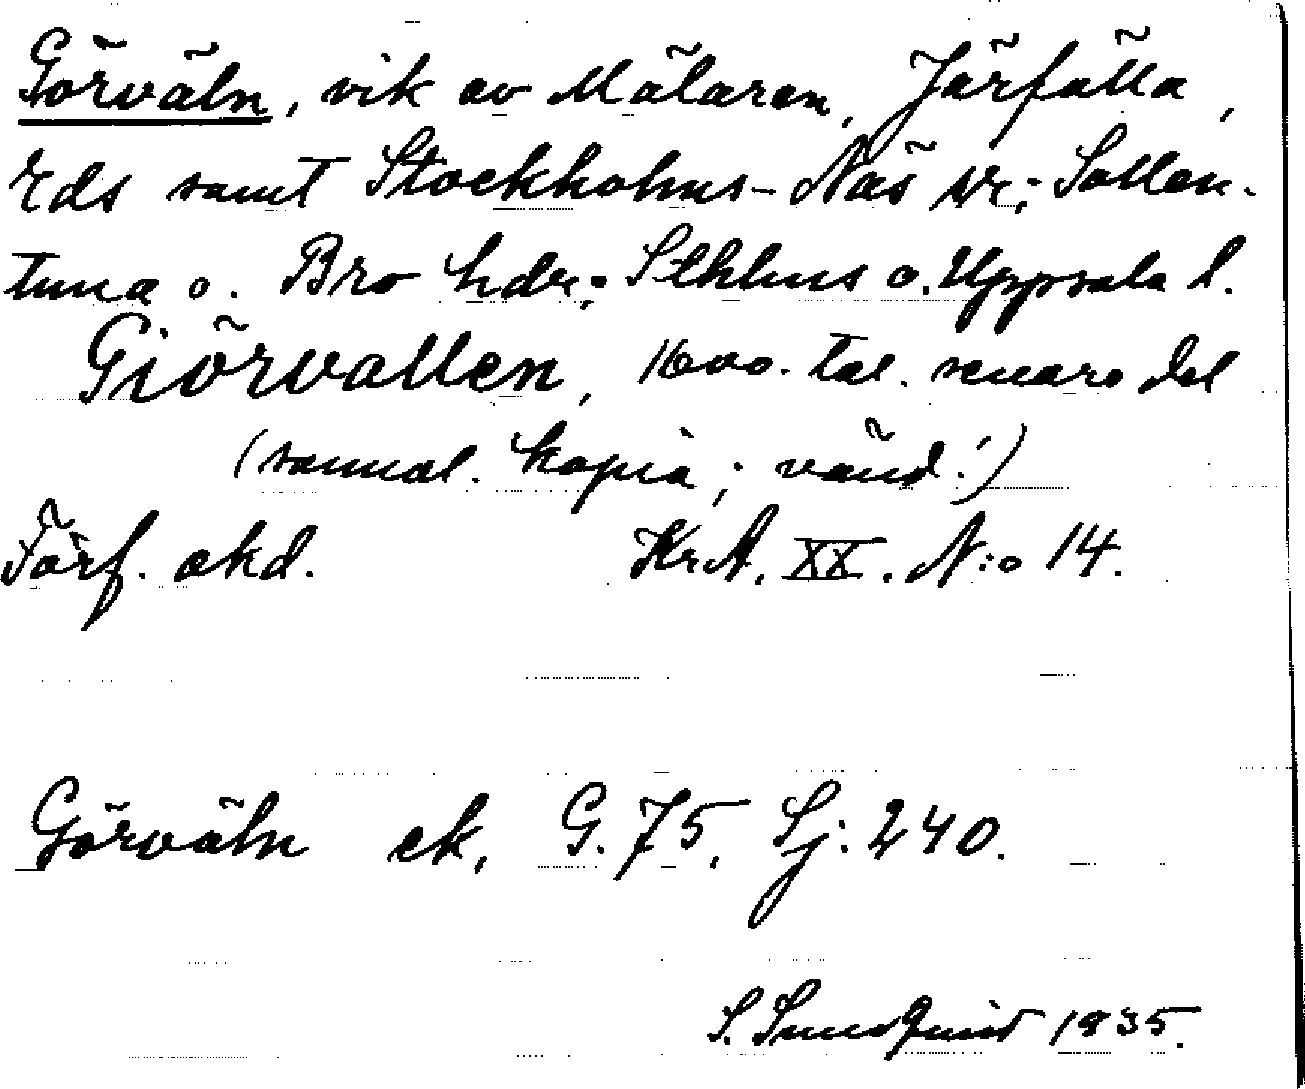 Görväln, vik av Mälaren, Järfälla,
Eds samt Stockholms-Näs snr; Sollen-
tuna o. Bro hdr; Sthlms o. Uppsala l.
Giörvallen, 1600-tal. senare del
(samal. kopia; vänd!)
Förf. okd. KrA. XX. N:o 14.
Görväln ek, G. 75, Sj: 240.
S. Sundquist 1935.